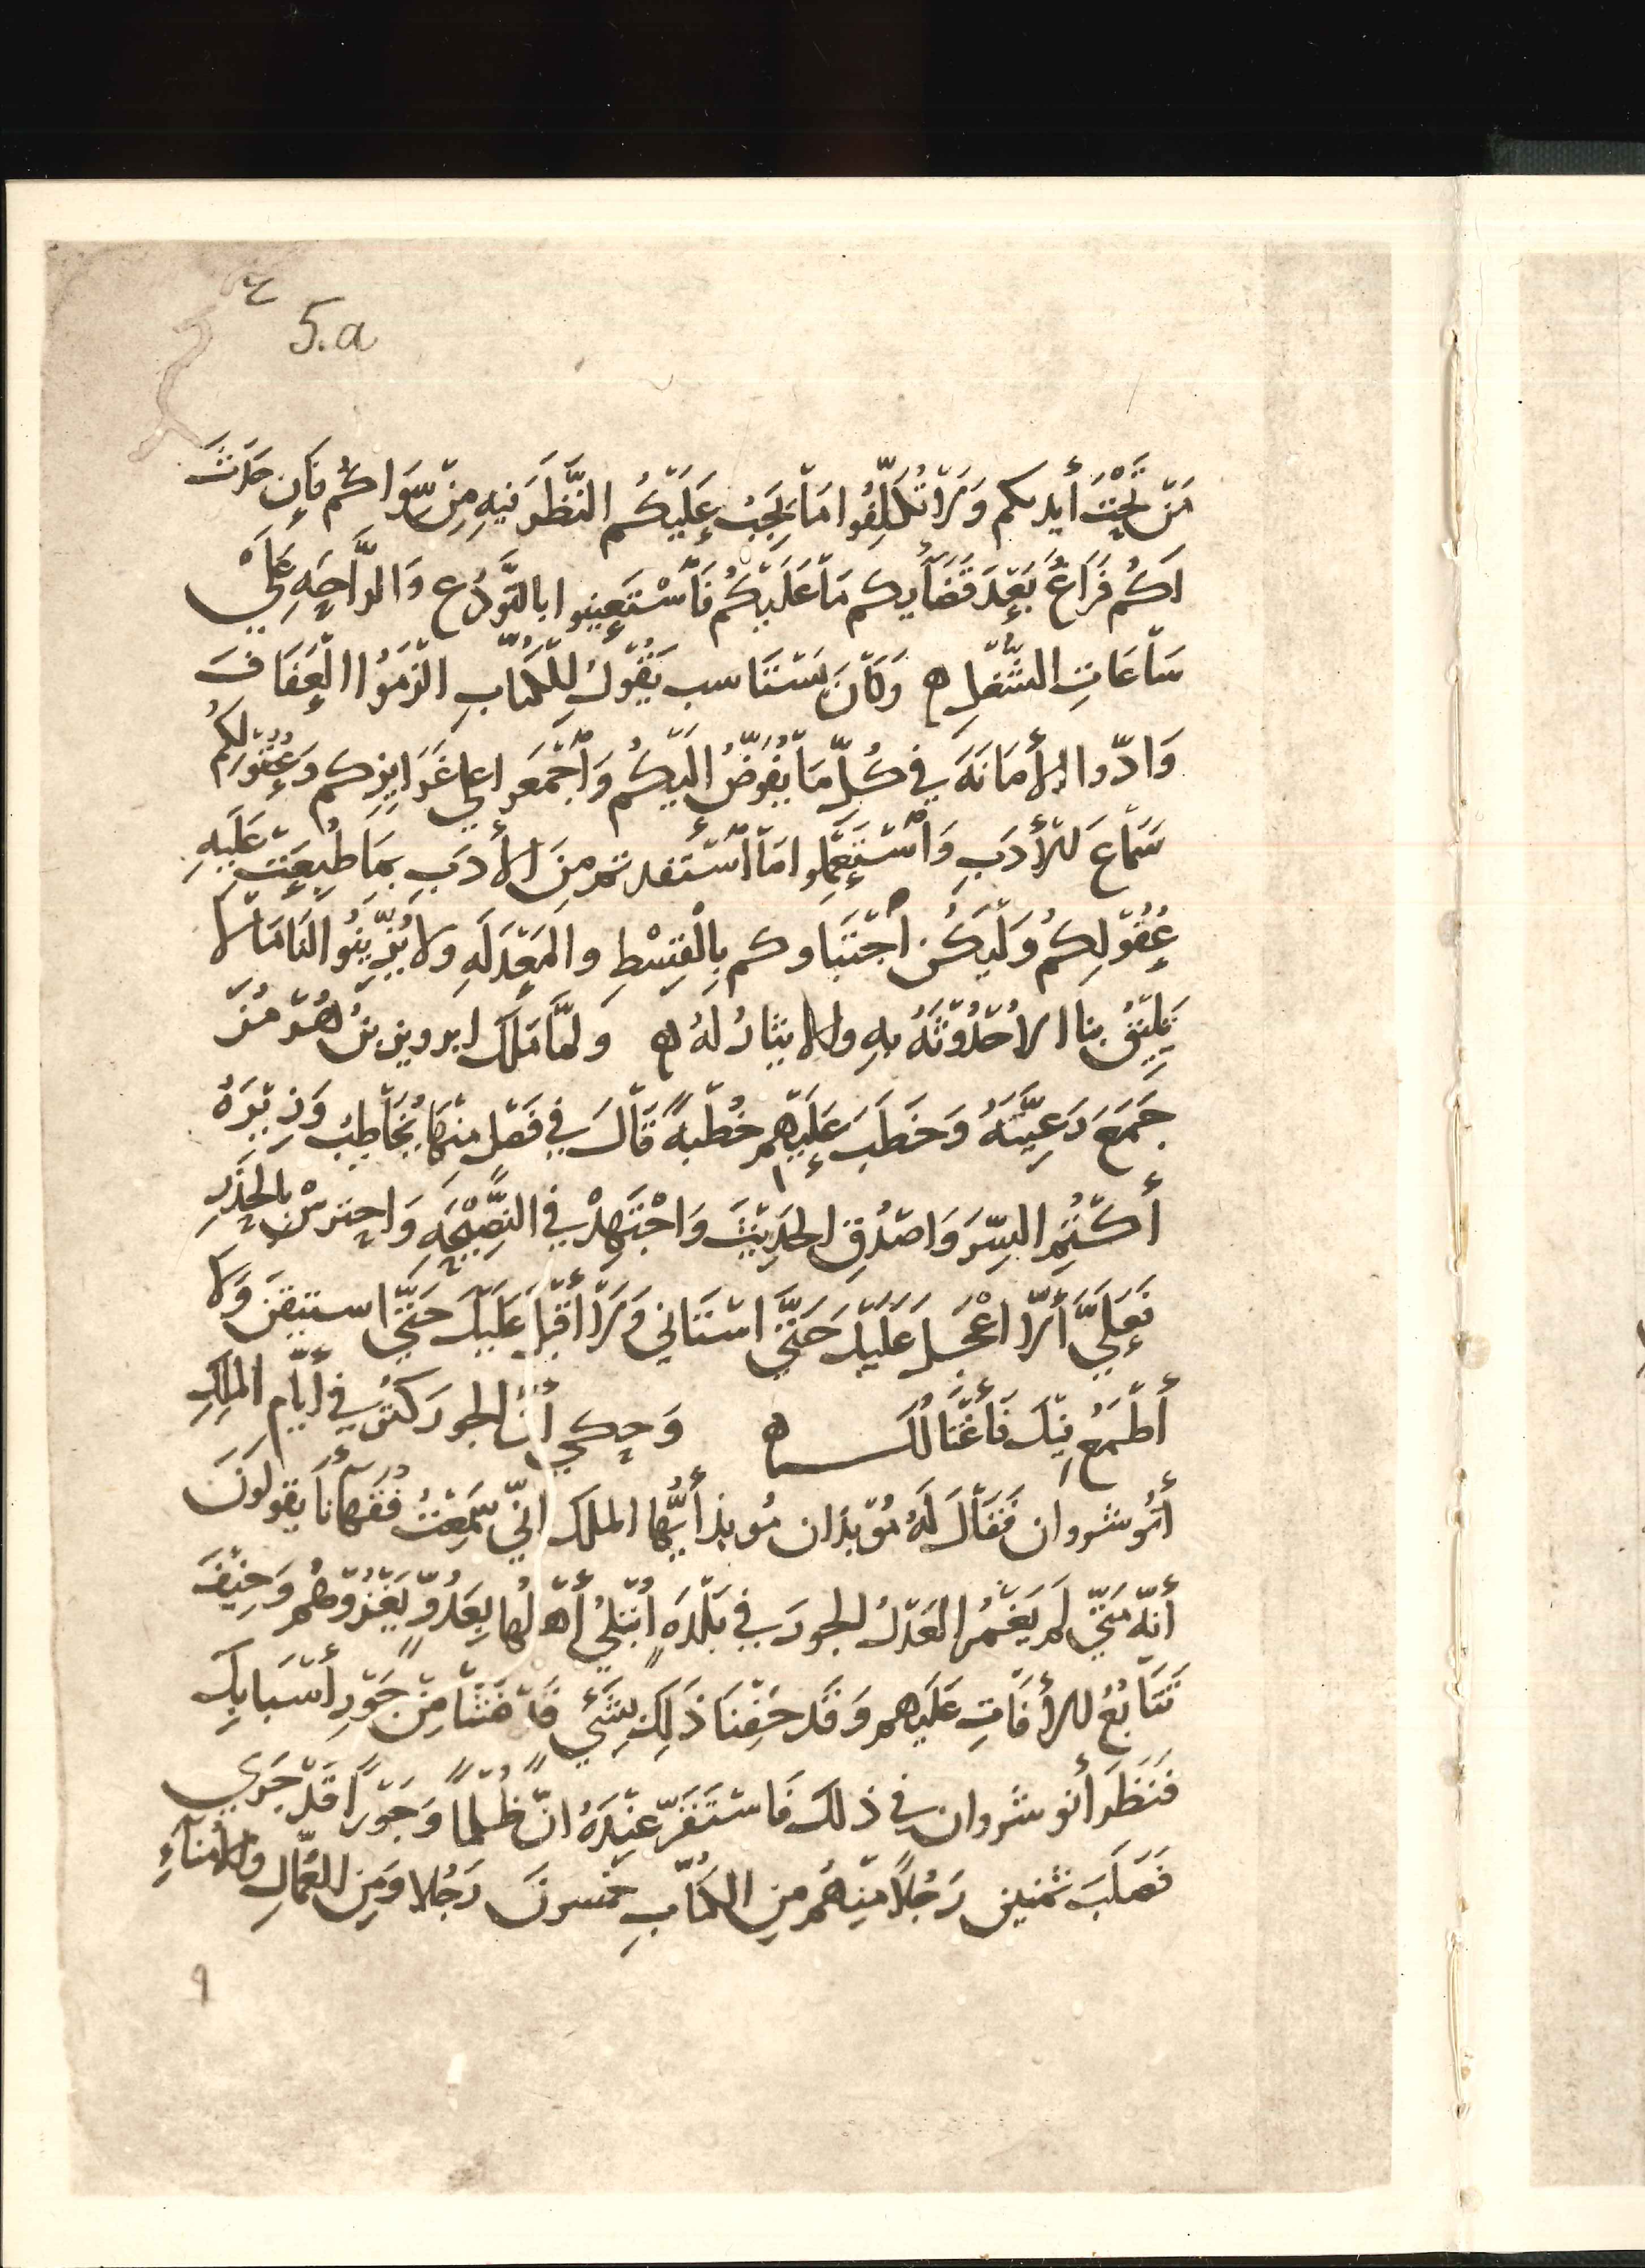 5.a
مَن تَحْتَ أيديكم وَلَا تُكَلِّفُوا مَا يَجِبُ عَلَيْكُم النَّظَر فيهِ مِن سِوَاكُم فَإن حَدَثَ
لَكُم فَرَاغٌ بَعْدَ قَضَايكم مَا عَلَيْكُم فَاسْتَعِينوا بالتَّوَدُّع وَالرَّاحَةِ عَلَى
سَاعَاتِ الشُّغْلِ ه وَكَانَ يَستَناسب يَقُوْلُ لِلْكُتَّابِ الْزَمُوا الْعَفَافَ
وَادّوا الأمَانَةَ فِي كُلِّ مَا يُفَوَّضُ إلَيْكُم وَاجْمَعوا على غَرَايِزكم وَعُقُولِكُم
سَمَاعَ الْأدَبِ وَاسْتَعْمِلوا مَا اسْتَفدتم مِنَ الأدَبِ بِمَا طُبِعَتْ عَلَيهِ
عُقُوْلِكُم وَلْيَكُن اجْتَباوكم بِالْقِسْطِ والْمَعْدَلَهِ ولا تُزَيِّنُوا لَنَا مَا لا
يَلِيْقُ بنا الاُحْدُوْثَهُ بِهِ ولا الايثَارُ لَهُ ه وَلَمَّا مَلَكَ ابرويز بنُ هُرْمُزَ
جَمَعَ رَعِيَّتَهُ وَخَطَبَ عَلَيْهِم خُطْبَهً قَالَ فِي فَصْل مِنْهَا يُخَاطِبُ وَزِيْرَهُ
أُكْتُمِ السِّرَّ وَاصْدُقِ الحَدِيْثَ وَاجْتَهِدْ فِي النَّصِيْحَهِ وَاحترسْ بِالحَذَرِ
فَعَلَيَّ ألّا اعْجَلَ عَلَيْكَ حَتَّى استَاني وَلَا أقْبَل عَلَيْكَ حَتَّى استيقنَ وَلَا
أطْمَعُ فِيْكَ فَأغْتَالُكَ ه وَحِكي أنَّ الجور كَثُرَ فِي أيَّامِ المَلِكِ
أنُوشروان فَقَالَ لَهُ مُوْبذان مُوبذ أيُّهَا الملك انِّي سَمِعْتُ فُقَهَآنَا يَقولونَ
أنّه مَتَى لَم يَغْمُرِ العَدْلُ الجورَ في بَلْدَهٍ ابْتُلِيَ أهْلُها بِعَدُوٍّ يَغْزُوْهُم وَخِيْفَ
تَتَابُعُ الأفَاتِ عَلَيهم وَقَد خِفْنَا ذَلِكَ بِشَيٍ قَد فَشَا مِنْ جَوْرِ أسْبَابِكَ
فَنَظَرَ أنوشروان في ذلك فَاسْتَقَرّ عِنْدَهُ انَّ ظُلْمًا وَجَوْرًا قَدْ جَرَي
فَصَلَبَ ثمنين رَجُلًا مِنْهُم مِن الكُتَّابِ خمسونَ رَجُلا وَمِن العُمَّالِ والأمَنَاءِ
9